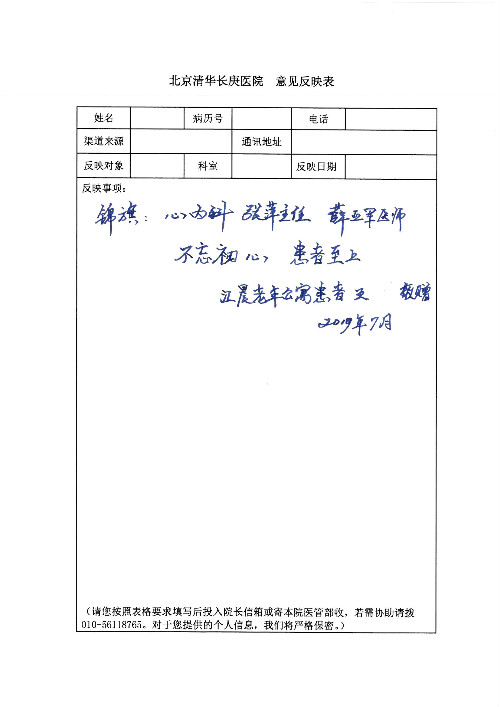 北京清华长庚医院 意见反映表
姓名 病历号 电话
渠道来源 通讯地址
反映对象 科室 反映日期
反映事项：
锦旗：心内科 张萍主任 薛亚军医师
不忘初心 患者至上
江晨老年公寓患者 敬赠
2019年7月
（请您按照表格要求填写后投入院长信箱或寄本院医管部收，若需协助请拨
010-56118765。对于您提供的个人信息，我们将严格保密。）